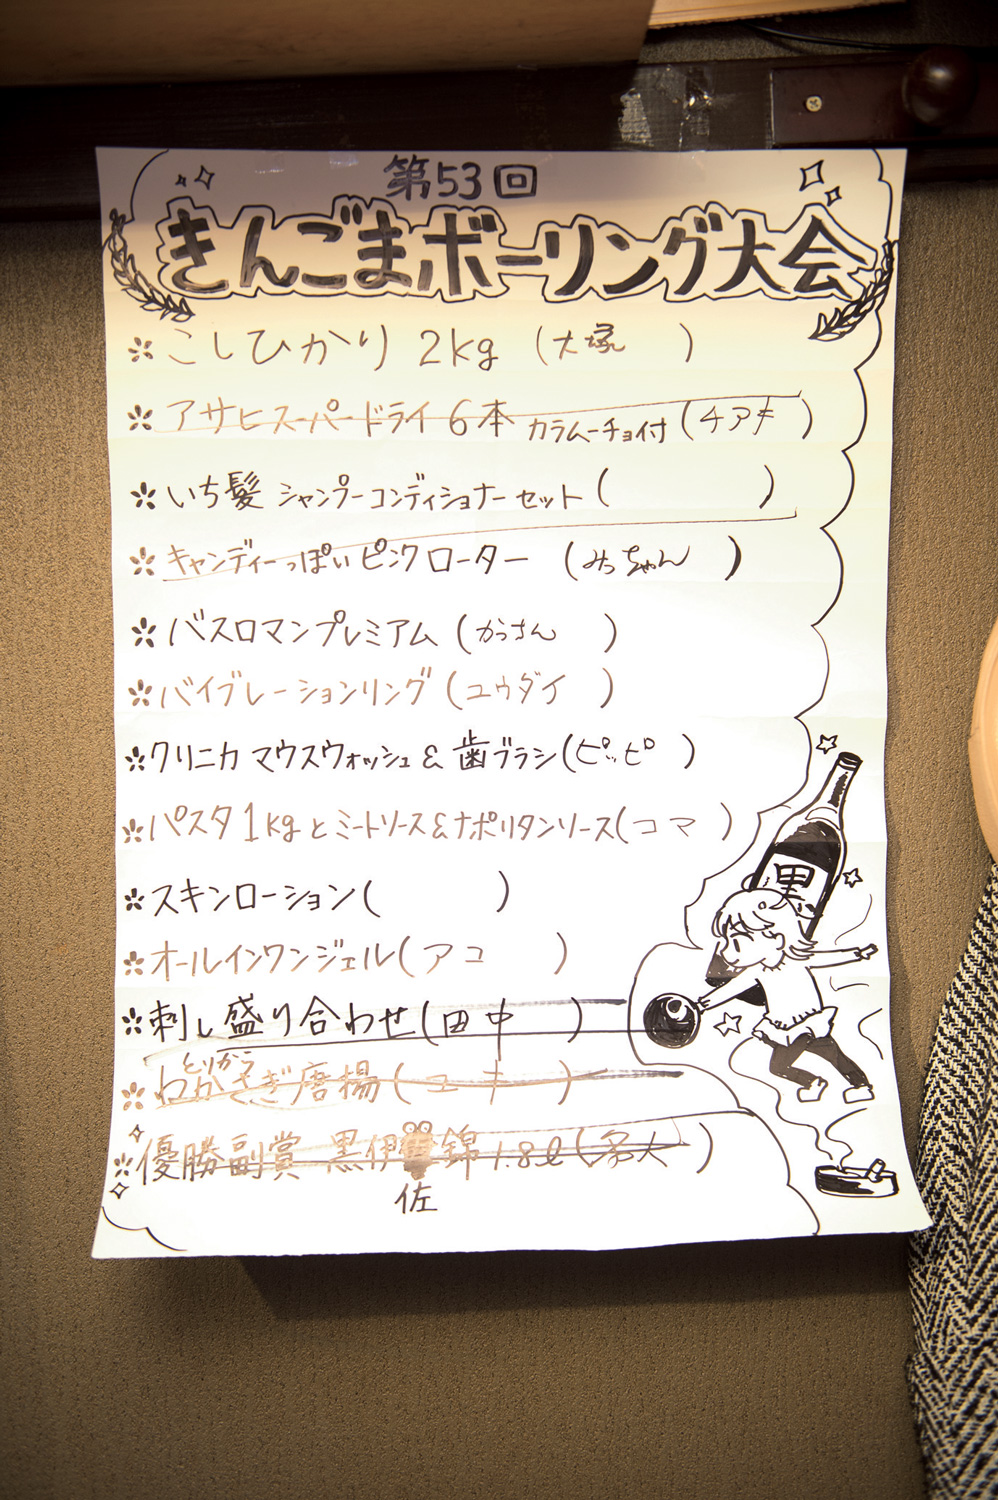 第53回
きんごまボーリング大会
こしひかり 2kg (大塚)
アサヒスーパードライ 6本 カラムーチョ付 (チアキ)
いち髪 シャンプーコンディショナーセット ( )
キャンディーっぽいピンクローター (みっちゃん)
バスロマンプレミアム (かっさん)
バイブレーションリング (ユウダイ)
クリニカ マウスウォッシュ & 歯ブラシ (ピッピ)
パスタ 1kgとミートソース&ナポリタンソース (コマ)
スキンローション ( )
オールインワンジェル (アコ)
刺し盛り合わせ (田中)
とりから
わかさぎ唐揚 (ユキ)
優勝副賞 黒伊錦 1.8ℓ
佐
黒